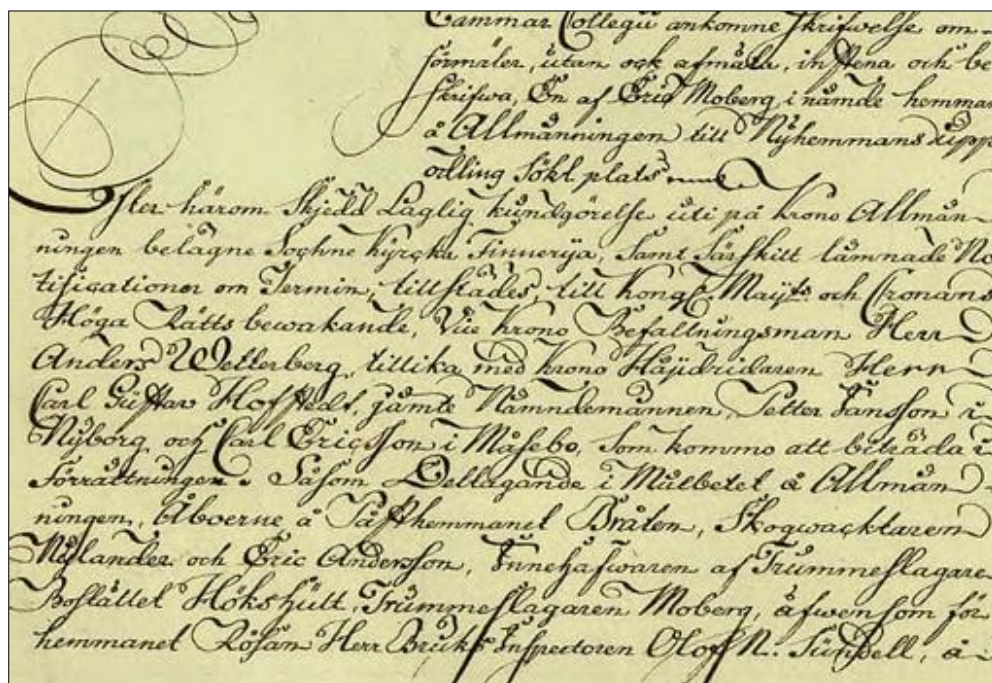 Cammar Collegii ankomne skrifwelse om-
förmäler, utan ock afmäla, in stena och be
skrifwa, En af Eric Moberg, i nämde hemman
å Allmänningen till Nyhemmans upp
odling sökt plats
Efter härom skjedd Laglig kundgörelse uti på Krono Allmän-
ningen belägne Sochne Kyrcka Finnerija, samt särskilt lämnade No
tificationer om Termin, tillstädes, till Kongl. Maijts och Cronans
Höga Rätts bewakande, Vice Krono Befallningsman Herr
Anders Wetterberg, tillika med Krono Häjdridaren Herr
Carl Gustaf Hofstedt, jämte Nämndemännen, Petter Jansson i
Nyborg och Carl Ericsson i Måsebo, som kommo att biträda i
Förrättningen. Såsom Deltagande i Mulbetet å Allmän-
ningen, Åboerne å Påsthemmanet Bråten, Skogwacktaren
Nylander och Eric Andersson, Innehafwaren af Trummeslagare
Bostället Hökshult, Trummeslagaren Moberg, äfwensom för
hemmanet Rösan Herr Bruks Inspectoren Olof N. Sundell, å-